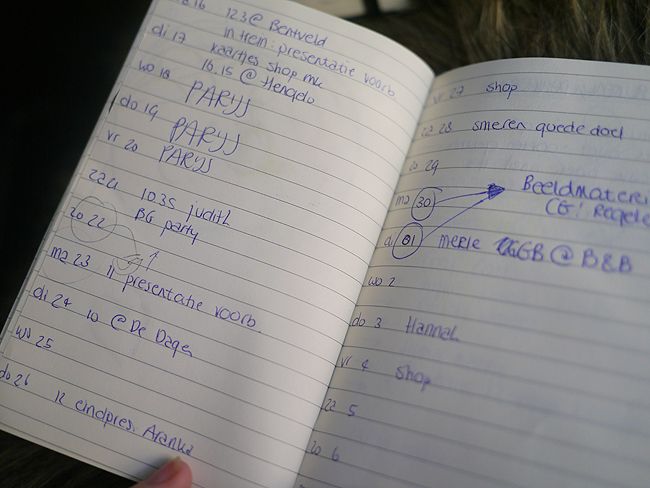 16 12.3 @ Bentveld
in trein: presentatie voorb.
di 17 kaartjes shop mk
16.15 @ Hengelo
wo 18 PARIJS
do 19 PARIJS
vr 20 PARIJS
za 21 10.35 Judith
BG party
zo 22
ma 23 11 presentatie voorb
di 24 10 @ De Dagen
wo 25
do 26 12 eindpres. Aranka
vr 27 shop
za 28 smeren goede doel
zo 29
ma 30 Beeldmaterei
CG! Regele
di 01 merle GGB @ B&B
wo 2
do 3 Hannah
vr 4 shop
za 5
zo 6